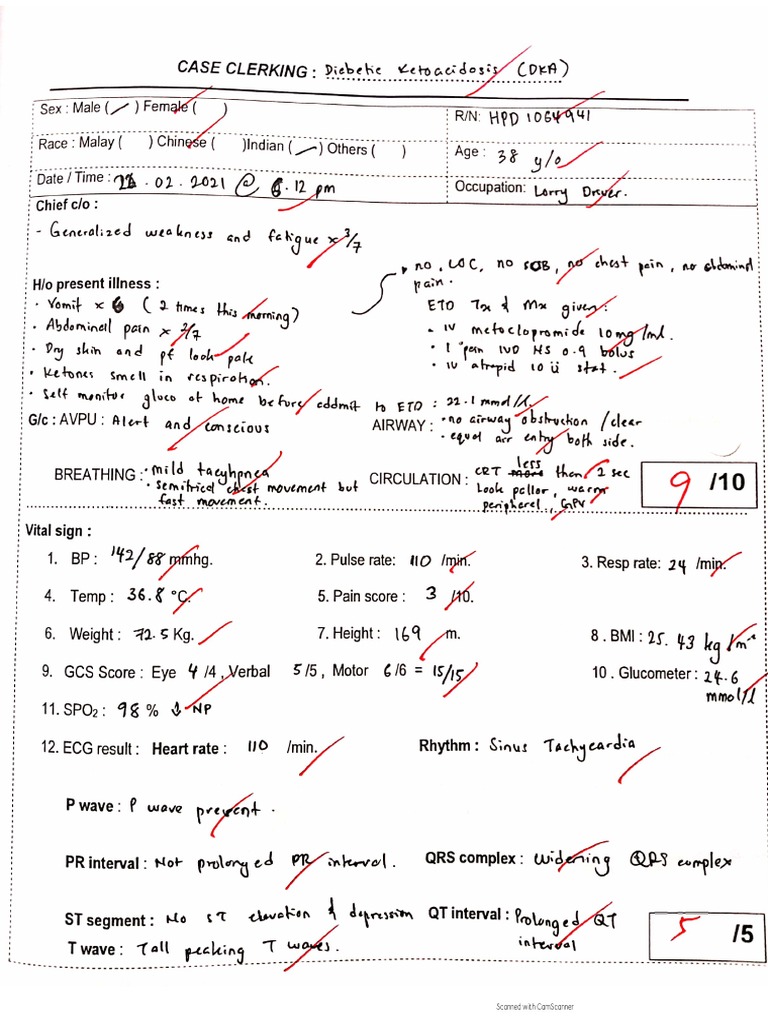 CASE CLERKING : Diebetic Ketoacidosis (DKA)
Sex : Male ( / ) Female ( )
R/N: HPD 1064941
Race : Malay ( ) Chinese ( ) Indian ( / ) Others ( )
Age : 38 y/o
Date / Time : 22.02.2021 @ 6.12 pm
Occupation: Lorry Driver.
Chief c/o :
- Generalized weakness and fatigue x 3/7
H/o present illness :
no LOC, no SOB, no chest pain, no abdominal pain.
• Vomit x 6 (2 times this morning)
• Abdominall pain x 2/7
• Dry skin and pt look pale
• Ketones smell in respiration.
• Self monitor gluco at home before addmit to ETD : 22.1 mmol/l.
ETD Tx & Mx given :
• IV metoclopromide 10mg/ml.
• 1 pain IVD NS 0.9 bolus
• IV atrepid 10 ü stat.
G/c : AVPU : Alert and conscious
AIRWAY : • no airway obstruction / clear
• equal air entry both side.
BREATHING : • mild tacyhpnea
• semitrical chest movement but
fast movement.
CIRCULATION : CRT more less than 2 sec
Look pallor, warm
peripherel, GPV
9 /10
Vital sign :
1. BP : 142/88 mmhg.
2. Pulse rate: 110 /min.
3. Resp rate: 24 /min.
4. Temp : 36.8 °C.
5. Pain score : 3 /10.
6. Weight : 72.5 Kg.
7. Height : 169 m.
8. BMI : 25.43 kg/m⁻²
9. GCS Score : Eye 4 /4 , Verbal 5 /5 , Motor 6 /6 = 15/15
10. Glucometer : 24.6 mmol/l
11. SPO₂ : 98 % ↓ NP
12. ECG result : Heart rate : 110 /min.
Rhythm : Sinus Tachycardia
P wave : P wave present.
PR interval : Not prolonged PR interval.
QRS complex : Widening QRS complex
ST segment : No ST elevation & depression
QT interval : Prolonged QT interval
T wave : Tall peaking T waves.
5 /5
Scanned with CamScanner